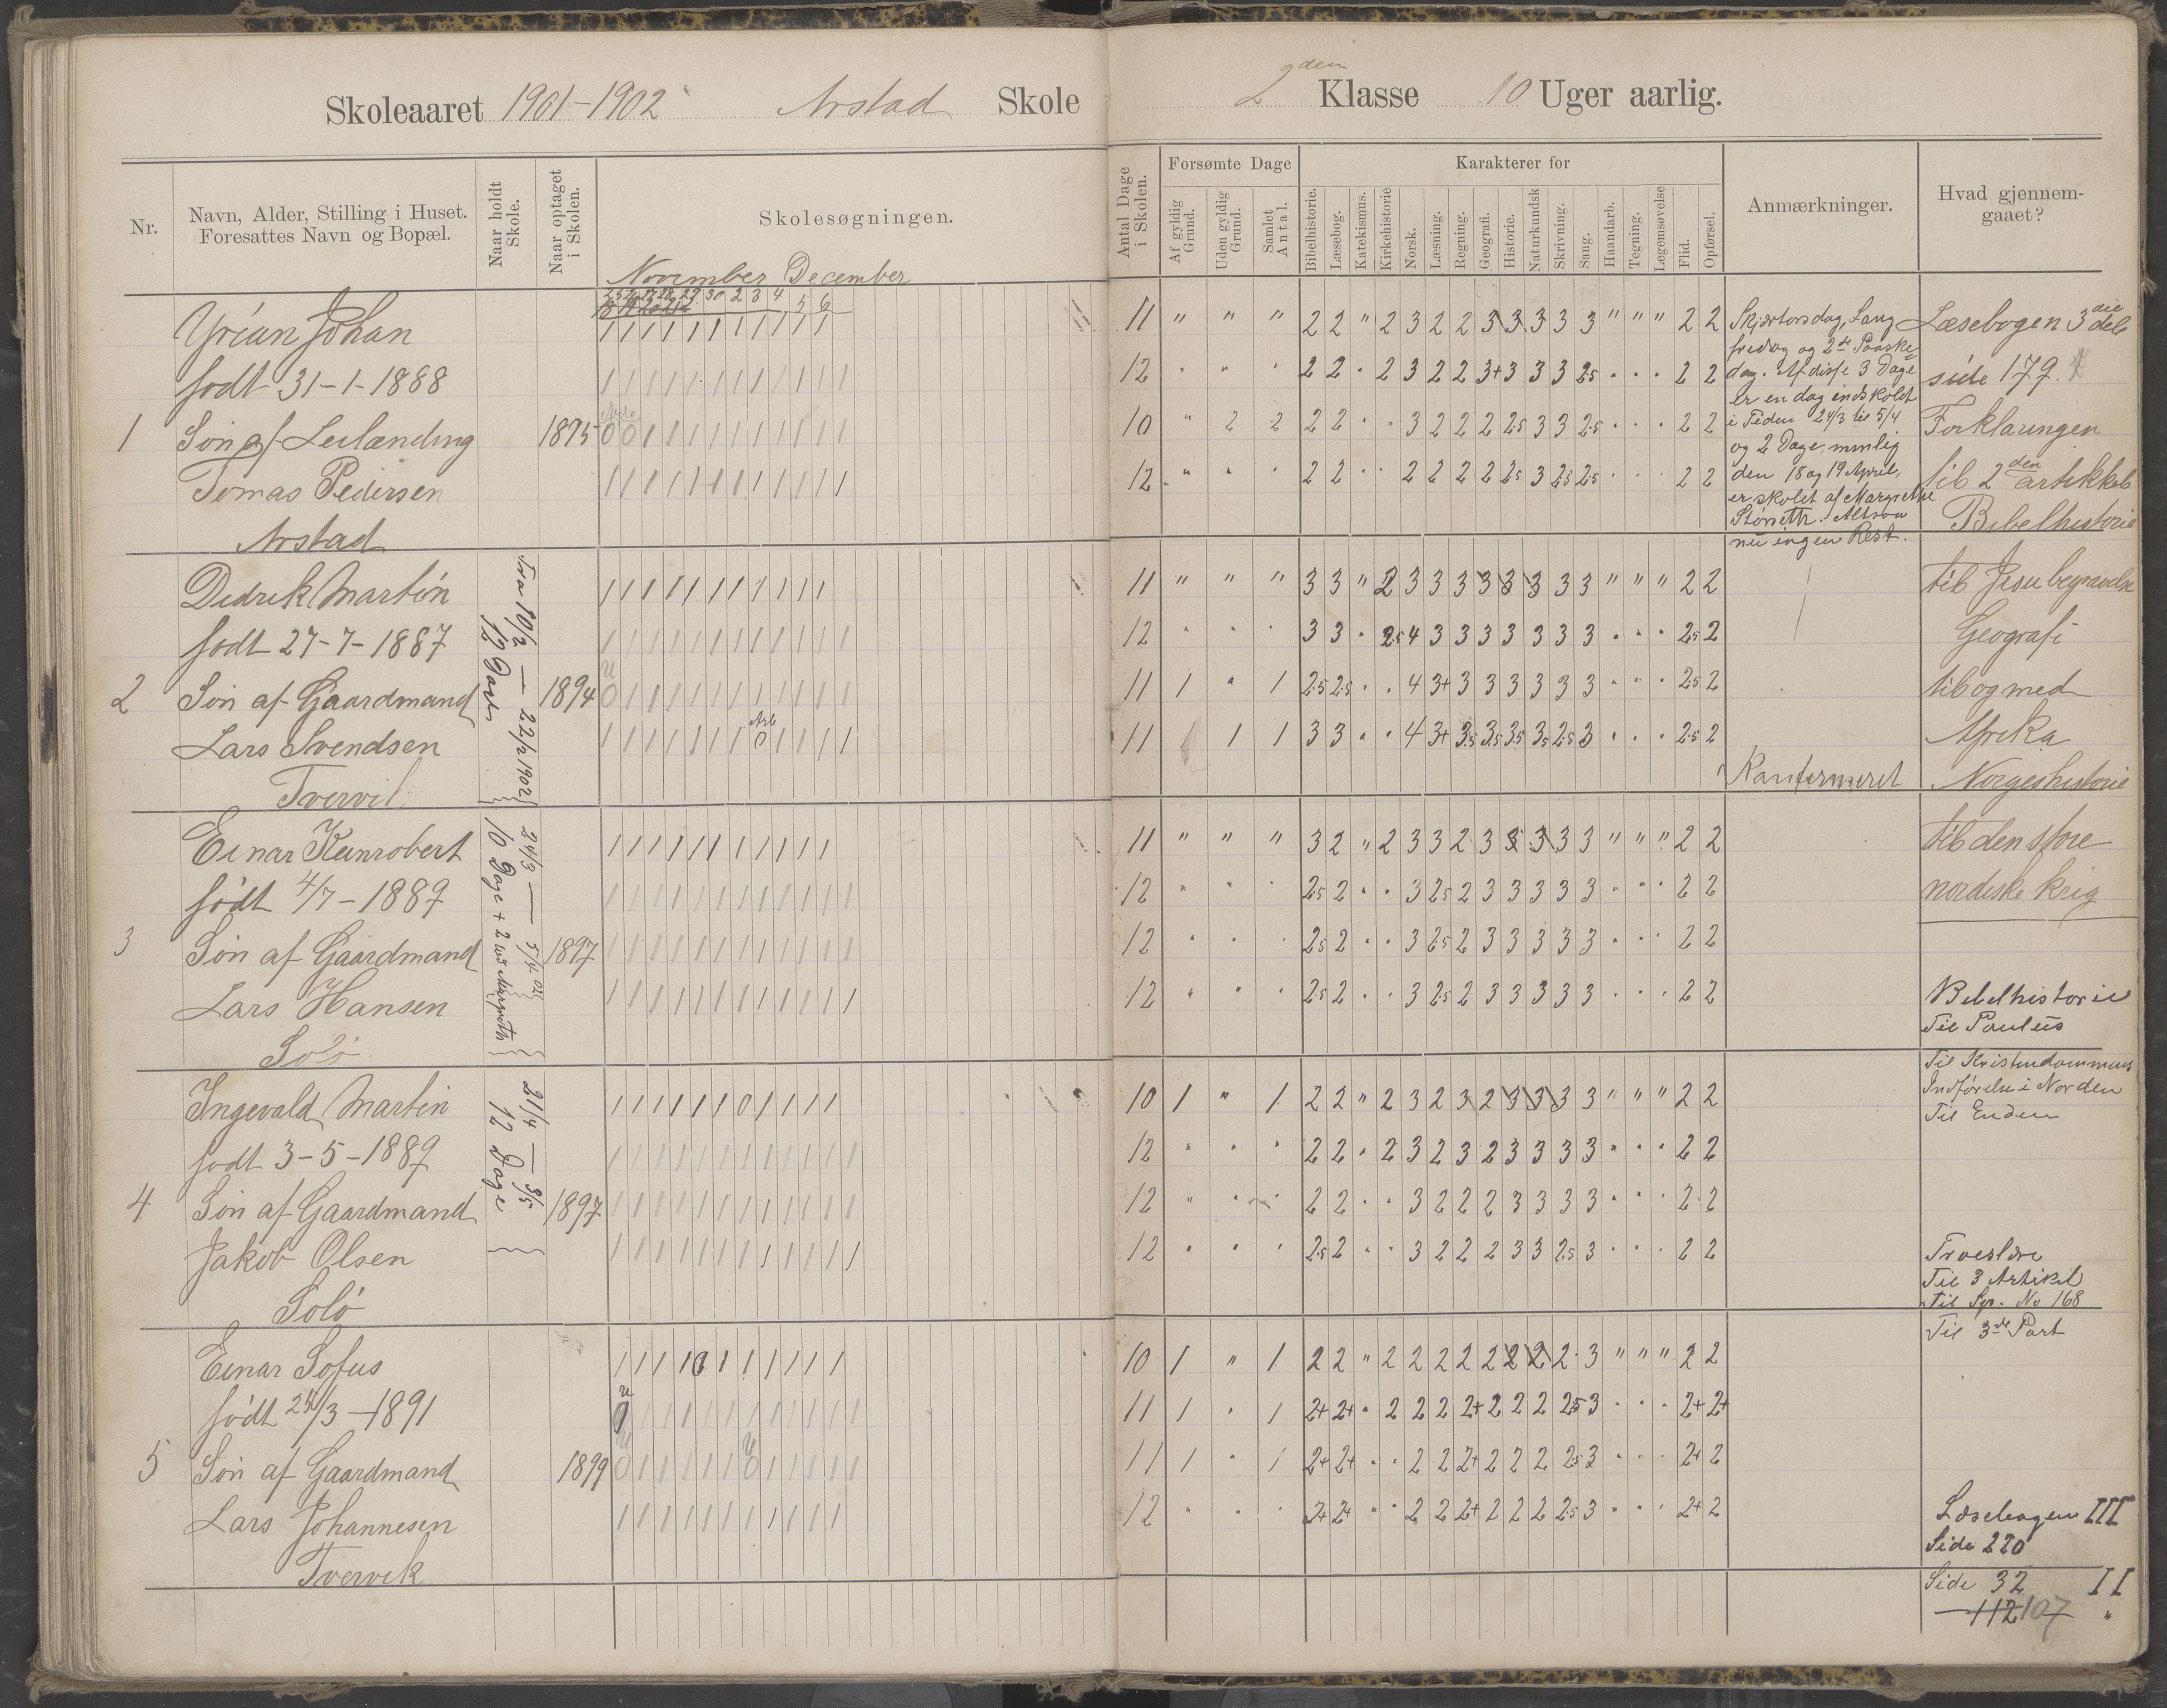 Skoleaaret 1901-1902 Arstad Skole
2den Klasse 10 Uger aarlig.
Nr.
Navn, Alder, Stilling i Huset.
Foresattes Navn og Bopæl.
Naar holdt
Skole.
Naar optaget
i Skolen.
Skolesøgningen.
November December
Antal Dage
i Skolen.
Forsømte Dage
Af gyldig
Grund.
Uden gyldig
Grund.
Samlet
Antal.
Karakterer for
Bibelhistorie.
Læsebog.
Katekismus.
Kirkehistorie
Norsk.
Læsning.
Regning.
Geografi.
Historie.
Naturkundsk
Skrivning.
Sang.
Haandarb.
Tegning.
Legemsøvelse
Flid.
Opførsel.
Anmærkninger.
Hvad gjennem-
gaaet?
Johan
født 31-1-1888
1 Søn af Leilænding 1895
Tomas Pedersen
Arstad
11 " " " 2 2 " 2 3 2 2 3 3 3 3 3 " " " 2 2
12 " " " 2 2 " 2 3 2 2 3+ 3 3 3 2.5 " " " 2 2
10 " 2 2 2 2 " " 3 2 2 2 2.5 3 3 2.5 " " " 2 2
12 " " " 2 2 " " 2 2 2 2 2.5 3 2.5 2.5 " " " 2 2
Skjærtorsdag, Lang
fredag og 2de Paaske
dag. Af disse 3 Dage
er en dag indskolet
i Tiden 24/3 til 5/4
og 2 Dage, nemlig
den 18 og 19 April,
er skolet af Margrethe
Altsaa
nu ingen Rest.
Læsebogen 3die del
side 179.
Forklaringen
til 2den artikkel
Bibelhistorie
Didrik Martin
født 27-7-1887
2 Søn af Gaardmand 1894
Lars Svendsen
Tvervik
Fra 10/2 — 22/2 1902
12 Dage
11 " " " 3 3 " 2 3 3 3 3 3 3 3 3 " " " 2 2
12 " " " 3 3 " 2.5 4 3 3 3 3 3 3 3 " " " 2.5 2
11 1 " 1 2.5 2.5 " " 4 3+ 3 3 3 3 3 3 " " " 2.5 2
11 1 1 3 3 " " 4 3+ 3.5 3.5 3.5 3.5 2.5 3 " " " 2.5 2
Konfirmeret
til Jesu begravelse
Geografi
til og med
Afrika
Norgeshistorie
Einar Kanrobert
født 4/7-1889
3 Søn af Gaardmand 1897
Lars Hansen
Solø
24/3 — 5/4 02
10 Dage + 2 ved Margrethe
11 " " " 3 2 " 2 3 3 2 3 3 3 3 3 " " " 2 2
12 " " " 2.5 2 " " 3 2.5 2 3 3 3 3 3 " " " 2 2
12 " " " 2.5 2 " " 3 2.5 2 3 3 3 3 3 " " " 2 2
12 " " " 2.5 2 " " 3 2.5 2 3 3 3 3 3 " " " 2 2
til den store
nordiske krig
Bibelhistorie
Til Paulus
Ingevald Martin
født 3-5-1889
4 Søn af Gaardmand 1897
Jakob Olsen
Solø
21/4 — 3/5
12 Dage
10 1 " 1 2 2 " 2 3 2 3 2 3 3 3 3 " " " 2 2
12 " " " 2 2 " 2 3 2 3 2 3 3 3 3 " " " 2 2
12 " " " 2 2 " " 3 2 2 2 3 3 3 3 " " " 2 2
12 " " " 2.5 2 " " 3 2 2 2 3 3 2.5 3 " " " 2 2
Til Kristendommens
Indførelse i Norden
Til Enden
Troeslære
Til 3 Artikel
Til Sp. No 168
Einar Sofus
født 25/3-1891
5 Søn af Gaardmand 1899
Lars Johannesen
Tvervik
10 1 " 1 2 2 " 2 2 2 2 2 2 2 2 3 " " " 2 2
11 1 " 1 2+ 2+ " 2 2 2 2+ 2 2 2 2.5 3 " " " 2+ 2+
11 1 " 1 2+ 2+ " " 2 2 2+ 2 2 2 2.5 3 " " " 2+ 2
12 " " " 2+ 2+ " " 2 2 2+ 2 2 2 2.5 3 " " " 2+ 2
Til 3de Part
Læsebogen III
Side 220
Side 32 II
112 107 "